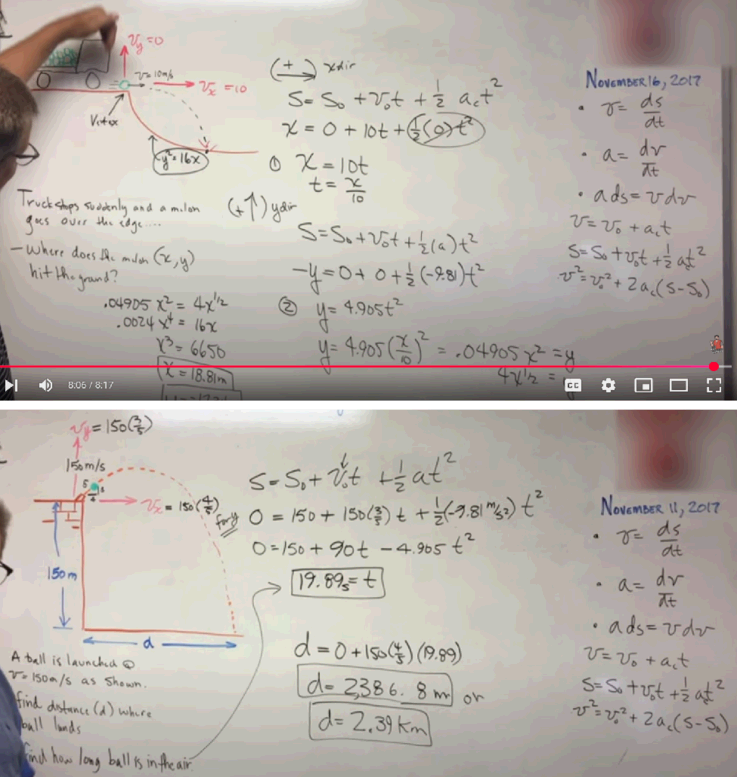 Vy=0
V=10m/s
Vx=10
Vertex
y²=16x
Truck stops suddenly and a melon
goes over the edge....
- Where does the melon (x,y)
hit the ground?
.04905x² = 4x^1/2
.0024x⁴ = 16x
x³ = 6650
x = 18.81m
(+) xdir
S = S₀ + v₀t + 1/2 act²
x = 0 + 10t + 1/2(0)t²
① x = 10t
t = x/10
(+↑) ydir
S = S₀ + v₀t + 1/2(a)t²
-y = 0 + 0 + 1/2(-9.81)t²
② y = 4.905t²
y = 4.905(x/10)² = .04905x² = y
4x^1/2 =
November 16, 2017
• v = ds/dt
• a = dv/dt
• ads = vdv
v = v₀ + act
S = S₀ + v₀t + 1/2 act²
v² = v₀² + 2ac(S-S₀)
8:06 / 8:17
CC
Vy = 150(3/5)
150m/s
5
3
4
Vx = 150(4/5)
150m
d
A ball is launched @
V=150m/s as shown.
find distance (d) where
ball lands
find how long ball is in the air
S = S₀ + v₀t + 1/2 at²
for y
0 = 150 + 150(3/5)t + 1/2(-9.81 m/s²)t²
0 = 150 + 90t - 4.905t²
19.89s = t
d = 0 + 150(4/5)(19.89)
d = 2,386.8m or
d = 2.39km
November 11, 2017
• v = ds/dt
• a = dv/dt
• ads = vdv
v = v₀ + act
S = S₀ + v₀t + 1/2 act²
v² = v₀² + 2ac(S-S₀)